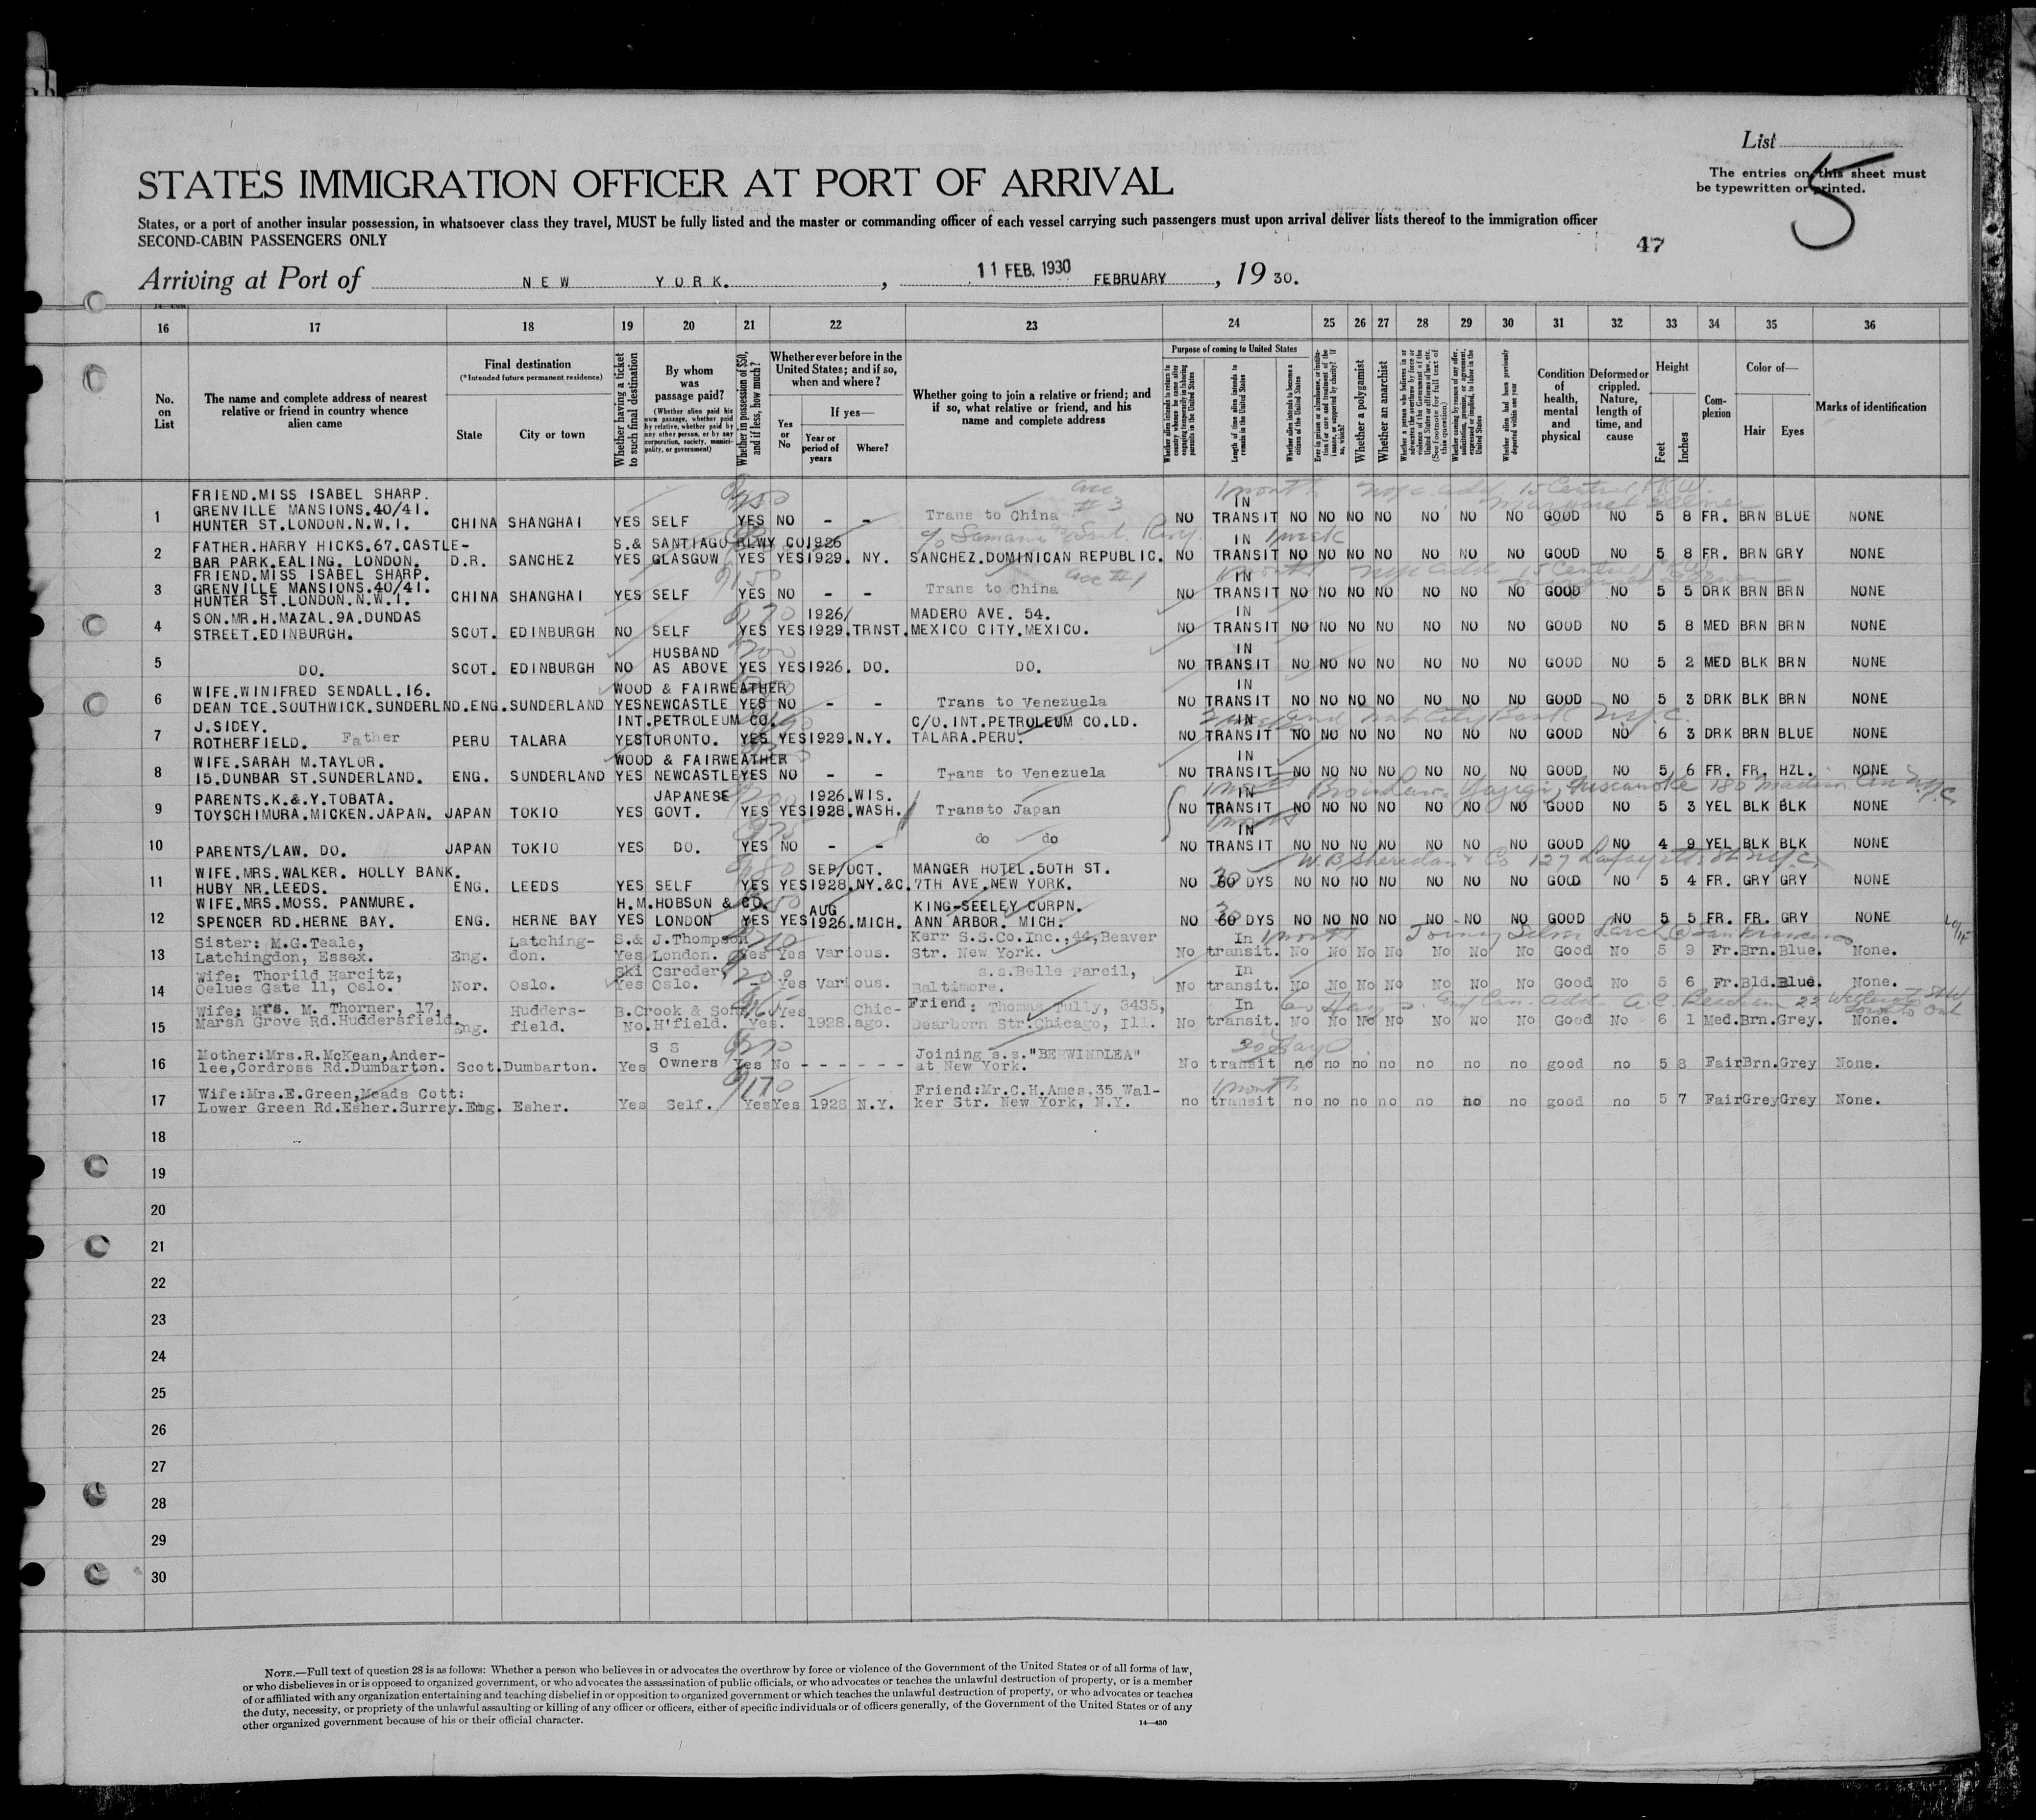 List
The entries on this sheet must
be typewritten or printed.
5
STATES IMMIGRATION OFFICER AT PORT OF ARRIVAL
States, or a port of another insular possession, in whatsoever class they travel, MUST be fully listed and the master or commanding officer of each vessel carrying such passengers must upon arrival deliver lists thereof to the immigration officer
SECOND-CABIN PASSENGERS ONLY
47
Arriving at Port of NEW YORK. , 11 FEB. 1930 FEBRUARY , 19 30.
16 17 18 19 20 21 22 23 24 25 26 27 28 29 30 31 32 33 34 35 36
No. on List
The name and complete address of nearest relative or friend in country whence alien came
Final destination
(*Intended future permanent residence)
State
City or town
Whether having a ticket to such final destination
By whom was passage paid?
(Whether alien paid his own passage, whether paid by relative, whether paid by any other person, or by any corporation, society, municipality, or government)
Whether in possession of $50, and if less, how much?
Whether ever before in the United States; and if so, when and where?
Yes or No
If yes—
Year or period of years
Where?
Whether going to join a relative or friend; and if so, what relative or friend, and his name and complete address
Purpose of coming to United States
Length of time alien intends to remain in the United States
Whether alien intends to become a citizen of the United States
Whether a polygamist
Whether an anarchist
Condition of health, mental and physical
Deformed or crippled. Nature, length of time, and cause
Height
Feet
Inches
Complexion
Color of—
Hair
Eyes
Marks of identification
1 FRIEND.MISS ISABEL SHARP.
GRENVILLE MANSIONS.40/41.
HUNTER ST.LONDON.N.W.I. CHINA SHANGHAI YES SELF YES NO - - Trans to China # 3 NO IN TRANSIT NO NO NO NO NO NO NO GOOD NO 5 8 FR. BRN BLUE NONE
2 FATHER.HARRY HICKS.67.CASTLE- S.& SANTIAGO RLWY CO 1926 IN 1 week
BAR PARK.EALING. LONDON. D.R. SANCHEZ YES GLASGOW YES YES 1929. NY. SANCHEZ.DOMINICAN REPUBLIC. NO TRANSIT NO NO NO NO NO NO NO GOOD NO 5 8 FR. BRN GRY NONE
3 FRIEND.MISS ISABEL SHARP.
GRENVILLE MANSIONS.40/41.
HUNTER ST.LONDON.N.W.I. CHINA SHANGHAI YES SELF YES NO - - Trans to China NO IN TRANSIT NO NO NO NO NO NO NO GOOD NO 5 5 DRK BRN BRN NONE
4 SON.MR.H.MAZAL.9A.DUNDAS 1926/ MADERO AVE. 54. IN
STREET.EDINBURGH. SCOT. EDINBURGH NO SELF YES YES 1929.TRNST. MEXICO CITY.MEXICO. NO TRANSIT NO NO NO NO NO NO NO GOOD NO 5 8 MED BRN BRN NONE
5 HUSBAND IN
DO. SCOT. EDINBURGH NO AS ABOVE YES YES 1926. DO. DO. NO TRANSIT NO NO NO NO NO NO NO GOOD NO 5 2 MED BLK BRN NONE
6 WIFE.WINIFRED SENDALL.16. WOOD & FAIRWEATHER IN
DEAN TCE.SOUTHWICK.SUNDERLND.ENG. SUNDERLAND YES NEWCASTLE YES NO - - Trans to Venezuela NO TRANSIT NO NO NO NO NO NO NO GOOD NO 5 3 DRK BLK BRN NONE
7 J.SIDEY. INT.PETROLEUM CO. C/O.INT.PETROLEUM CO.LD. IN
ROTHERFIELD. Father PERU TALARA YES TORONTO. YES YES 1929.N.Y. TALARA.PERU. NO TRANSIT NO NO NO NO NO NO NO GOOD NO 6 3 DRK BRN BLUE NONE
8 WIFE.SARAH M.TAYLOR. WOOD & FAIRWEATHER IN
15.DUNBAR ST.SUNDERLAND. ENG. SUNDERLAND YES NEWCASTLE YES NO - - Trans to Venezuela NO TRANSIT NO NO NO NO NO NO NO GOOD NO 5 6 FR. FR. HZL. NONE
9 PARENTS.K.&.Y.TOBATA. JAPANESE 1926.WIS. IN
TOYSCHIMURA.MICKEN.JAPAN. JAPAN TOKIO YES GOVT. YES YES 1928.WASH. Trans to Japan NO TRANSIT NO NO NO NO NO NO NO GOOD NO 5 3 YEL BLK BLK NONE
10 do do IN
PARENTS/LAW. DO. JAPAN TOKIO YES DO. YES NO - - NO TRANSIT NO NO NO NO NO NO NO GOOD NO 4 9 YEL BLK BLK NONE
11 WIFE.MRS.WALKER. HOLLY BANK. SEP/OCT. MANGER HOTEL.50TH ST.
HUBY NR.LEEDS. ENG. LEEDS YES SELF YES YES 1928.NY.&C. 7TH AVE.NEW YORK. NO 60 DYS NO NO NO NO NO NO NO GOOD NO 5 4 FR. GRY GRY NONE
12 WIFE.MRS.MOSS. PANMURE. H.M.HOBSON & CO. AUG KING-SEELEY CORPN.
SPENCER RD.HERNE BAY. ENG. HERNE BAY YES LONDON YES YES 1926.MICH. ANN ARBOR. MICH. NO 60 DYS NO NO NO NO NO NO NO GOOD NO 5 5 FR. FR. GRY NONE
13 Sister: M.G.Teale, Latching- S.& J.Thompson Kerr S.S.Co.Inc.,44,Beaver In 1 month
Latchingdon, Essex. Eng. don. Yes London. Yes Yes Various. Str. New York. No transit. No No No No No No No Good No 5 9 Fr. Brn. Blue. None.
14 Wife: Thorild Harcitz, Ski Csreder, s.s.Belle Pareil, In
Oelues Gate 11, Oslo. Nor. Oslo. Yes Oslo. - Yes Various. Baltimore. No transit. No No No No No No No Good No 5 6 Fr. Bld. Blue. None.
15 Wife: Mrs. M. Thorner, 17, Hudders- B.Crook & Sons Yes Chic- Friend: Thomas Tully, 3435, In
Marsh Grove Rd.Huddersfield. Eng. field. No H'field. Yes. 1928 ago. Dearborn Str.Chicago, Ill. No transit. No No No No No No No Good No 6 1 Med. Brn. Grey. None.
16 Mother:Mrs.R.McKean,Ander- S S Joining s.s."BERWINDLEA" 30 days
lee,Cordross Rd.Dumbarton. Scot. Dumbarton. Yes Owners Yes No - - - - - - at New York. No transit no no no no no no no good no 5 8 Fair Brn. Grey None.
17 Wife:Mrs.E.Green,Meads Cott: Friend:Mr.C.H.Ames,35 Wal- 1 month
Lower Green Rd.Esher.Surrey. Eng. Esher. Yes Self. Yes Yes 1928 N.Y. ker Str. New York, N.Y. no transit no no no no no no no good no 5 7 Fair Grey Grey None.
18
19
20
21
22
23
24
25
26
27
28
29
30
NOTE.—Full text of question 28 is as follows: Whether a person who believes in or advocates the overthrow by force or violence of the Government of the United States or of all forms of law,
or who disbelieves in or is opposed to organized government, or who advocates the assassination of public officials, or who advocates or teaches the unlawful destruction of property, or is a member
of or affiliated with any organization entertaining and teaching disbelief in or opposition to organized government or which teaches the unlawful destruction of property, or who advocates or teaches
the duty, necessity, or propriety of the unlawful assaulting or killing of any officer or officers, either of specific individuals or of officers generally, of the Government of the United States or of any
other organized government because of his or their official character.
14—430